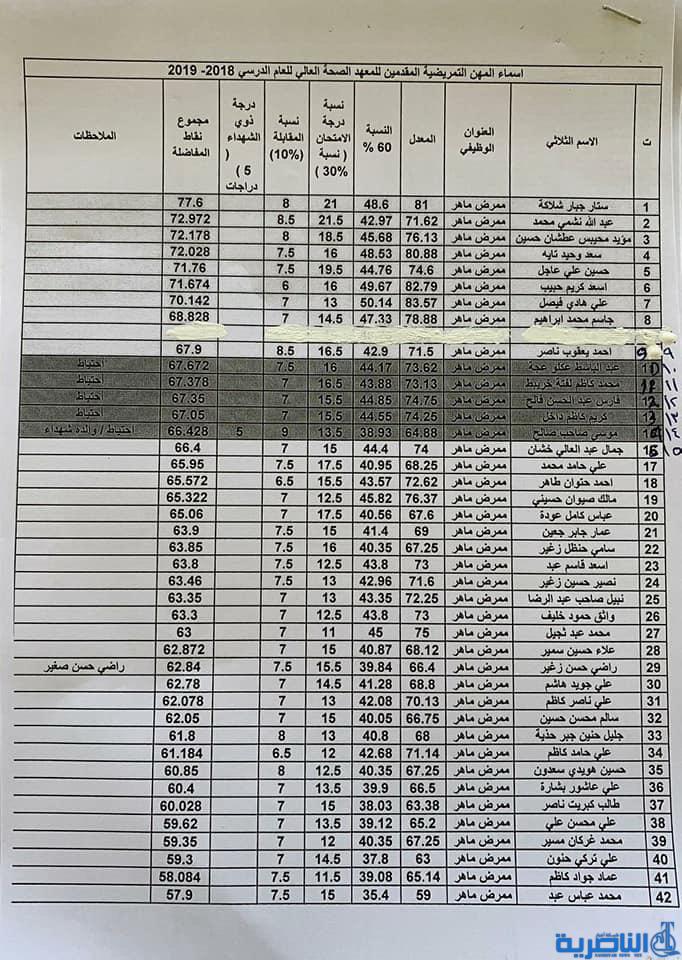 اسماء المهن التمريضية المقدمين للمعهد الصحة العالي للعام الدرسي 2018- 2019
ت الاسم الثلاثي العنوان الوظيفي المعدل النسبة 60 % نسبة درجة الامتحان ( نسبة 30%) نسبة المقابلة (10%) درجة ذوي الشهداء ( 5 ) درجات مجموع نقاط المفاضلة الملاحظات
1 ستار جبار شلاكة ممرض ماهر 81 48.6 21 8 77.6
2 عبد الله نشمي محمد ممرض ماهر 71.62 42.97 21.5 8.5 72.972
3 مؤيد محيبس عطشان حسين ممرض ماهر 76.13 45.68 18.5 8 72.178
4 سعد وحيد تايه ممرض ماهر 80.88 48.53 16 7.5 72.028
5 حسين علي عاجل ممرض ماهر 74.6 44.76 19.5 7.5 71.76
6 اسعد كريم حبيب ممرض ماهر 82.79 49.67 16 6 71.674
7 علي هادي فيصل ممرض ماهر 83.57 50.14 13 7 70.142
8 جاسم محمد ابراهيم ممرض ماهر 78.88 47.33 14.5 7 68.828
9 ٩ احمد يعقوب ناصر ممرض ماهر 71.5 42.9 16.5 8.5 67.9
10 ١٠ عبد الباسط عكلو عجة ممرض ماهر 73.62 44.17 16 7.5 67.672 احتياط
11 ١١ محمد كاظم لفتة خريبط ممرض ماهر 73.13 43.88 16.5 7 67.378 احتياط
12 ١٢ فارس عبد الحسن فالح ممرض ماهر 74.75 44.85 15.5 7 67.35 احتياط
13 ١٣ كريم كاظم داخل ممرض ماهر 74.25 44.55 15.5 7 67.05 احتياط
١٤ موسى صاحب صالح ممرض ماهر 64.88 38.93 13.5 9 5 66.428 احتياط / والدة شهداء
١٥ جمال عبد العالي خشان ممرض ماهر 74 44.4 15 7 66.4
17 علي حامد محمد ممرض ماهر 68.25 40.95 17.5 7.5 65.95
18 احمد حنوان طاهر ممرض ماهر 72.62 43.57 15.5 6.5 65.572
19 مالك صيوان حسيني ممرض ماهر 76.37 45.82 12.5 7 65.322
20 عباس كامل عودة ممرض ماهر 67.6 40.56 17.5 7 65.06
21 عمار جابر جعين ممرض ماهر 69 41.4 15 7.5 63.9
22 سامي حنظل زغير ممرض ماهر 67.25 40.35 16 7.5 63.85
23 اسعد قاسم عبد ممرض ماهر 73 43.8 12.5 7.5 63.8
24 نصير حسين زغير ممرض ماهر 71.6 42.96 13 7.5 63.46
25 نبيل صاحب عبد الرضا ممرض ماهر 72.25 43.35 13 7 63.35
26 واثق حمود خليف ممرض ماهر 73 43.8 12.5 7 63.3
27 محمد عبد ثجيل ممرض ماهر 75 45 11 7 63
28 علاء حسين سمير ممرض ماهر 68.12 40.87 15 7 62.872
29 راضي حسن زغير ممرض ماهر 66.4 39.84 15.5 7.5 62.84 راضي حسن صغير
30 علي جويد هاشم ممرض ماهر 68.8 41.28 14.5 7 62.78
31 علي ناصر كاظم ممرض ماهر 70.13 42.08 13 7 62.078
32 سالم محسن حسين ممرض ماهر 66.75 40.05 15 7 62.05
33 جليل حنين جبر حذية ممرض ماهر 68 40.8 13 8 61.8
34 علي حامد كاظم ممرض ماهر 71.14 42.68 12 6.5 61.184
35 حسين هويدي سعدون ممرض ماهر 67.25 40.35 12.5 8 60.85
36 علي عاشور بشارة ممرض ماهر 66.5 39.9 13.5 7 60.4
37 طالب كبريت ناصر ممرض ماهر 63.38 38.03 15 7 60.028
38 علي محسن علي ممرض ماهر 65.2 39.12 13.5 7 59.62
39 محمد غركان مسير ممرض ماهر 67.25 40.35 12 7 59.35
40 علي تركي حنون ممرض ماهر 63 37.8 14.5 7 59.3
41 عماد جواد كاظم ممرض ماهر 65.14 39.08 11.5 7.5 58.084
42 محمد عباس عبد ممرض ماهر 59 35.4 15 7.5 57.9
شبكة أخبار
الناصرية
NASIRIYAH NEWS NET